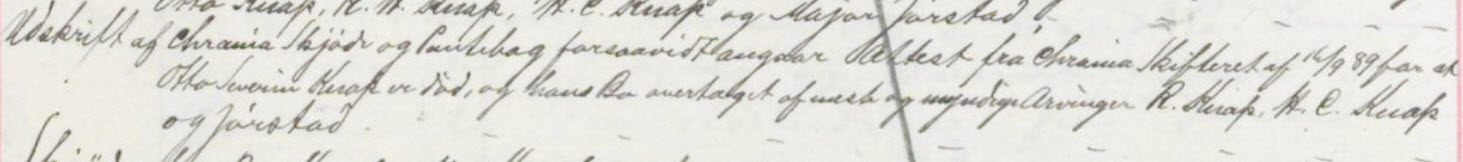 Otto Knap, R. H. Knap, H. C. Knap og Major Jørstad
Udskrift af Chrania Skjøde og Pantebog forsaavidt angaar Attest fra Chrania Skifteret af 16/9 89 for at
Otto Knap er død, og hans Bo overtaget af og myndige Arvinger R. Knap, H. C. Knap
og Jørstad.